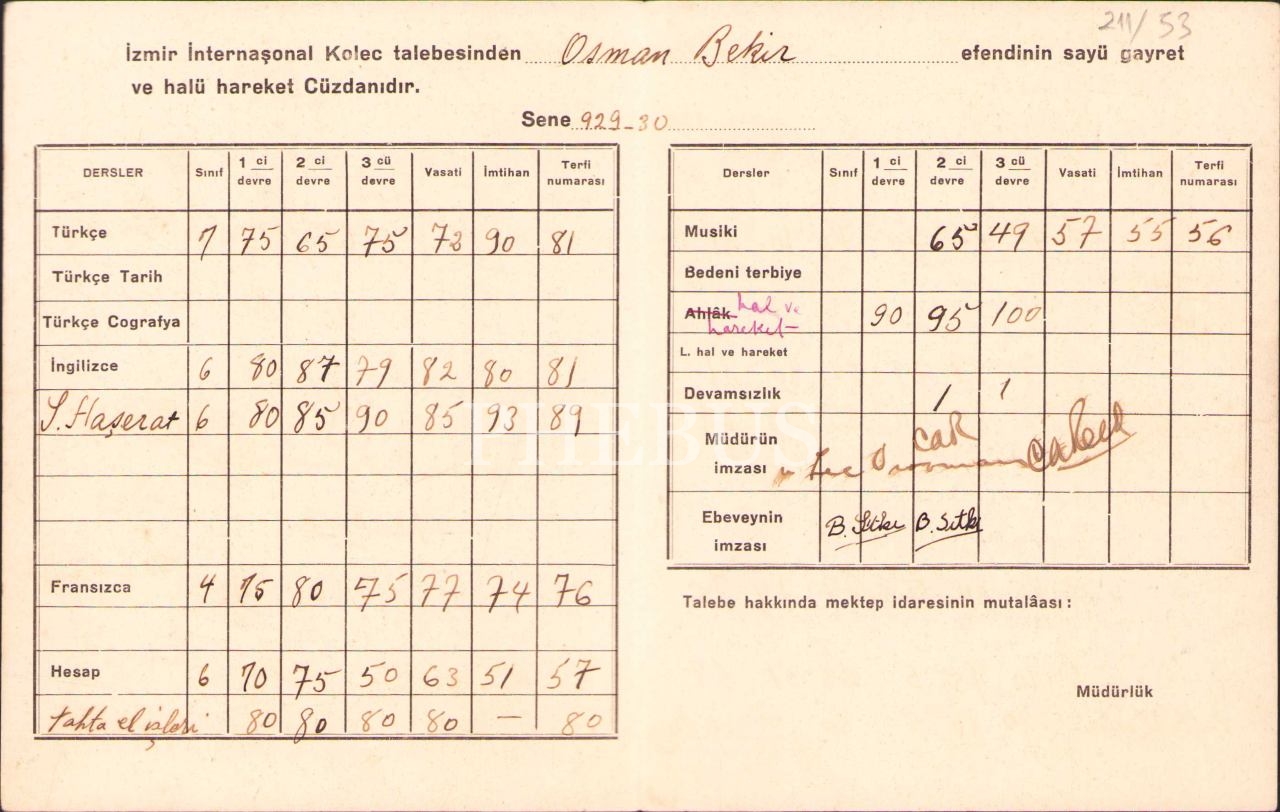 211/53
İzmir İnternaşonal Kolec talebesinden Osman Bekir efendinin sayü gayret
ve halü hareket Cüzdanıdır.
Sene 929-30
DERSLER Sınıf 1 ci devre 2 ci devre 3 cü devre Vasati İmtihan Terfi numarası
Türkçe 7 75 65 75 72 90 81
Türkçe Tarih
Türkçe Cografya
İngilizce 6 80 87 79 82 80 81
S. Haşerat 6 80 85 90 85 93 89
Fransızca 4 75 80 75 77 74 76
Hesap 6 70 75 50 63 51 57
tahta el işleri 80 80 80 80 — 80
Dersler Sınıf 1 ci devre 2 ci devre 3 cü devre Vasati İmtihan Terfi numarası
Musiki 65 49 57 55 56
Bedeni terbiye
Ahlâk hal ve hareket 90 95 100
L. hal ve hareket
Devamsızlık 1 1
Müdürün
imzası
Ebeveynin B. Sıtkı B. Sıtkı
imzası
Talebe hakkında mektep idaresinin mutalâası :
Müdürlük
THEBUS